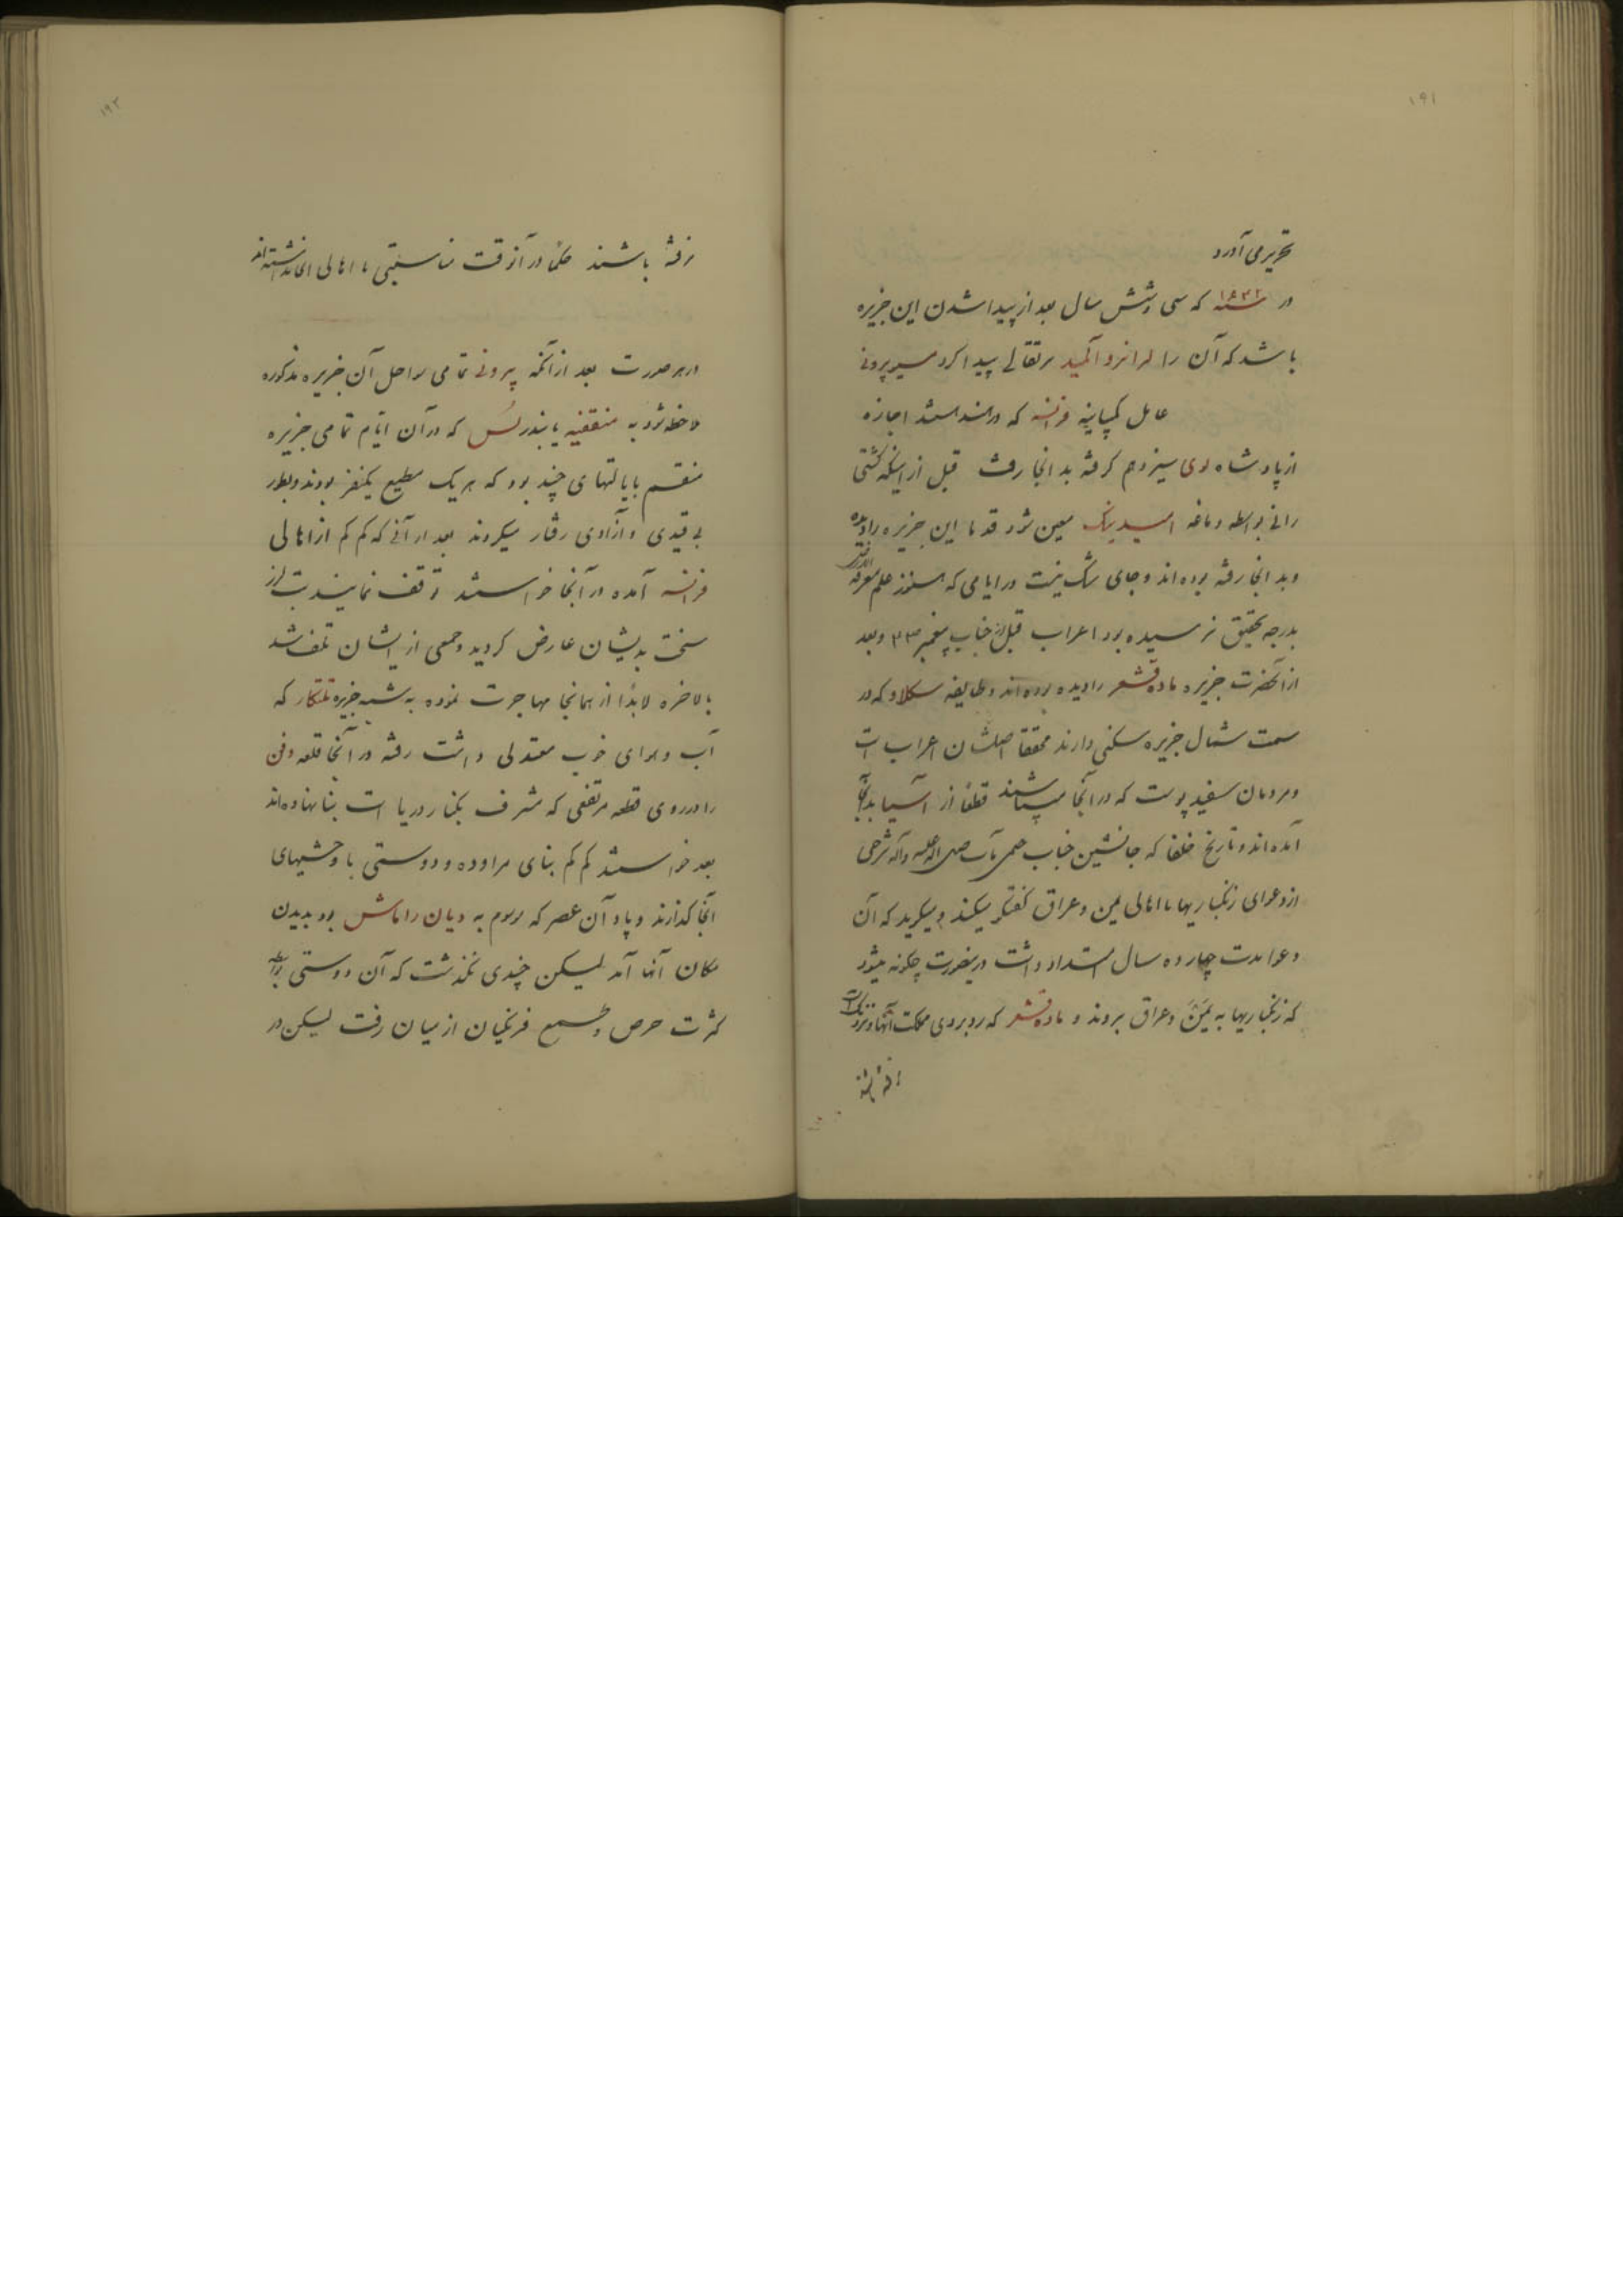 ۱۹۱
تحریر می آورد
در سنه ۱۶۴۲ که سی و شش سال بعد از پیدا شدن این جزیره
باشد که آن را لرانزو آلمید پرتقالی پیدا کرد مسیو پرونی
عامل کمپانیه فرانسه که در هند هستند اجازه
از پادشاه لوی سیزدهم گرفته بدانجا رفت قبل از اینکه کشتی
رانی بواسطه دماغه امید نیک معین شود قدما این جزیره را دیده
و بدانجا رفته بوده اند و جای شک نیست در ایامی که هنوز علم معرفة الارض
بدرجه تحقیق نرسیده بود اعراب قبل از جناب پیغمبر و بعد
از آنحضرت جزیره ماده قشقر را دیده بوده اند و طایفه سکلاو که در
سمت شمال جزیره سکنی دارند محققا اصلشان اعراب است
و مردمان سفید پوست که در آنجا میباشند قطعا از آسیا بدانجا
آمده اند و تاریخ خلفا که جانشین جناب ختمی مآب صلی الله علیه و آله شرحی
از دعوای زنگباریها با اهالی یمن و عراق گفتگو میکند و میگوید که آن
دعوا مدت چهارده سال امتداد داشت در اینصورت چگونه میشود
که زنگباریها به یمن و عراق بروند و ماده قشقر که روبروی مملکت آنها و نزدیک است
نرفته باشند
۱۹۲
نرفته باشند حکما در آنوقت مناسبتی با اهالی آنجا نداشته اند
در هر صورت بعد از آنکه پرونی تمامی سواحل آن جزیره مذکوره
ملاحظه نمود به منقفیه یا بندر لس که در آن ایام تمامی جزیره
منقسم بایالتهای چند بود که هر یک مطیع یکنفر بودند و بطور
بی قیدی و آزادی رفتار میکردند بعد از آنی که کم کم از اهالی
فرانسه آمده در آنجا خواستند توقف نمایند تب لرز
سخت بدیشان عارض گردید و جمعی از ایشان تلف شد
بالاخره لابدا از همانجا مهاجرت نموده به شبه جزیره تلنکار که
آب و هوای خوب معتدلی داشت رفته در آنجا قلعه دفن
را در روی قطعه مرتفعی که مشرف بکنار دریا است بنا نهاده اند
بعد خواستند کم کم بنای مراوده و دوستی با وحشیهای
آنجا گذارند و پاد آن عصر که موسوم به دیان راماش بود بدیدن
مکان آنها آمد لیکن چندی نگذشت که آن دوستی بواسطه
کثرت حرص و طمع فرنگیان از میان رفت لیکن در